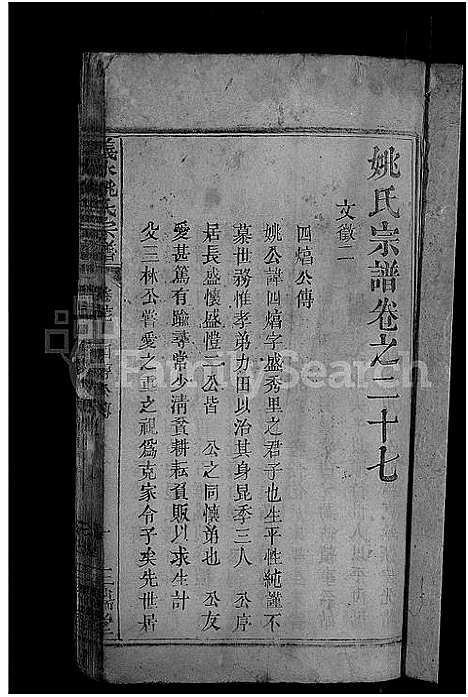 姚氏宗譜卷之二十七
文徵二
四熺公傳
姚公諱四熺字盛秀里之君子也生平性純謹不
慕世務惟孝弟力田以治其身昆季三人 公序
居長盛懷盛愷二公皆 公之同懷弟也 公友
愛甚篤有踰尋常少清貧耕耘負販以求生計
父三林公嘗愛之重之視爲克家令子矣先世居
義水姚氏宗譜
FamilySearch